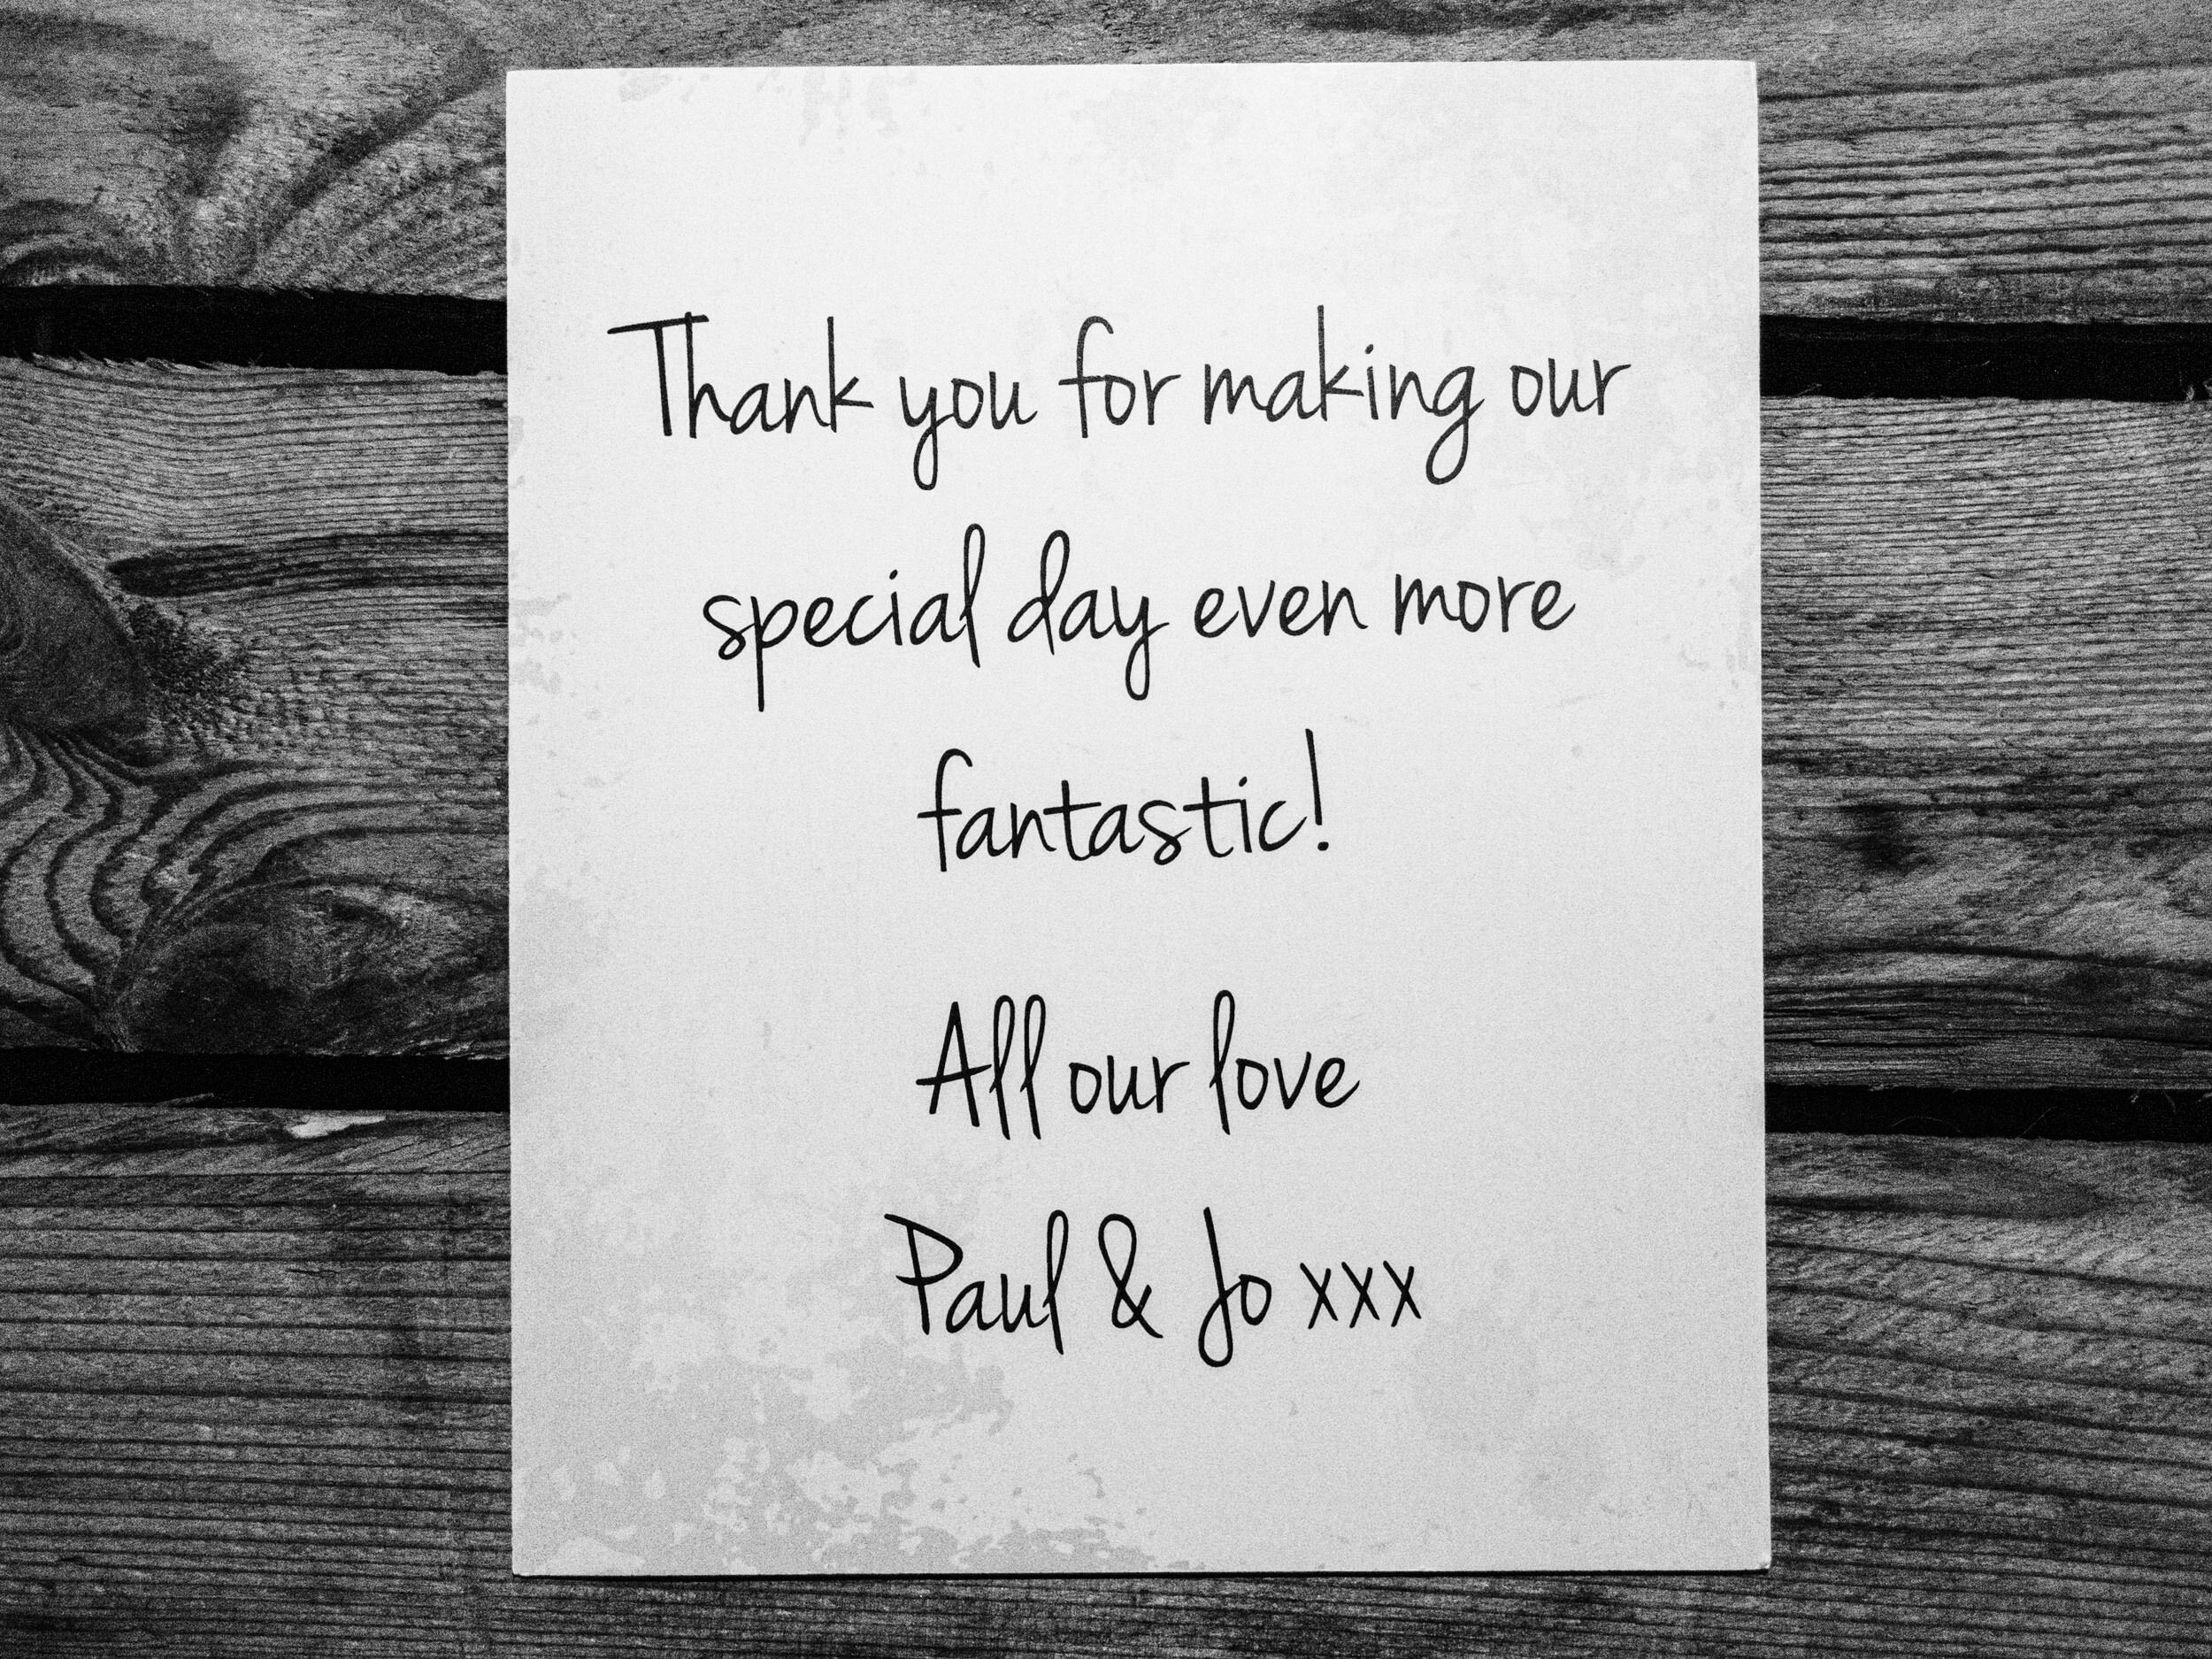 Thank you for making our
special day even more
fantastic!
All our love
Paul & Jo xxx